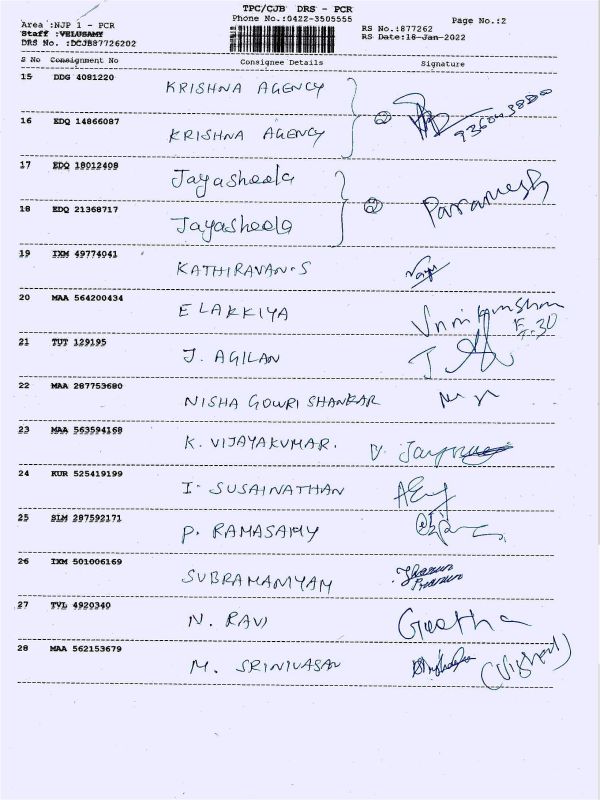 TPC/CJB DRS - PCR
Area :NJP 1 - PCR Phone No.:0422-3505555 Page No.:2
Staff :VELUSAMY RS No.:877262
DRS No. :DCJB87726202 RS Date:18-Jan-2022
S No Consignment No Consignee Details Signature
15 DDG 4081220 KRISHNA AGENCY
16 EDQ 14866087 KRISHNA AGENCY ②
17 EDQ 18012408 Jayasheela
18 EDQ 21368717 Jayasheela ② Paramesh
19 IXM 49774041 KATHIRAVAN.S
20 MAA 564200434 ELAKKIYA
5.30
21 TUT 129195 J. AGILAN
22 MAA 287753680 NISHA GOWRI SHANKAR
23 MAA 563594168 K. VIJAYAKUMAR.
24 KUR 525419199 I. SUSAINATHAN
25 SLM 287592171 P. RAMASAMY
26 IXM 501006169 SUBRAMANIYAM
27 TVL 4920340 N. RAVI Geetha
28 MAA 562153679 M. SRINIVASAN